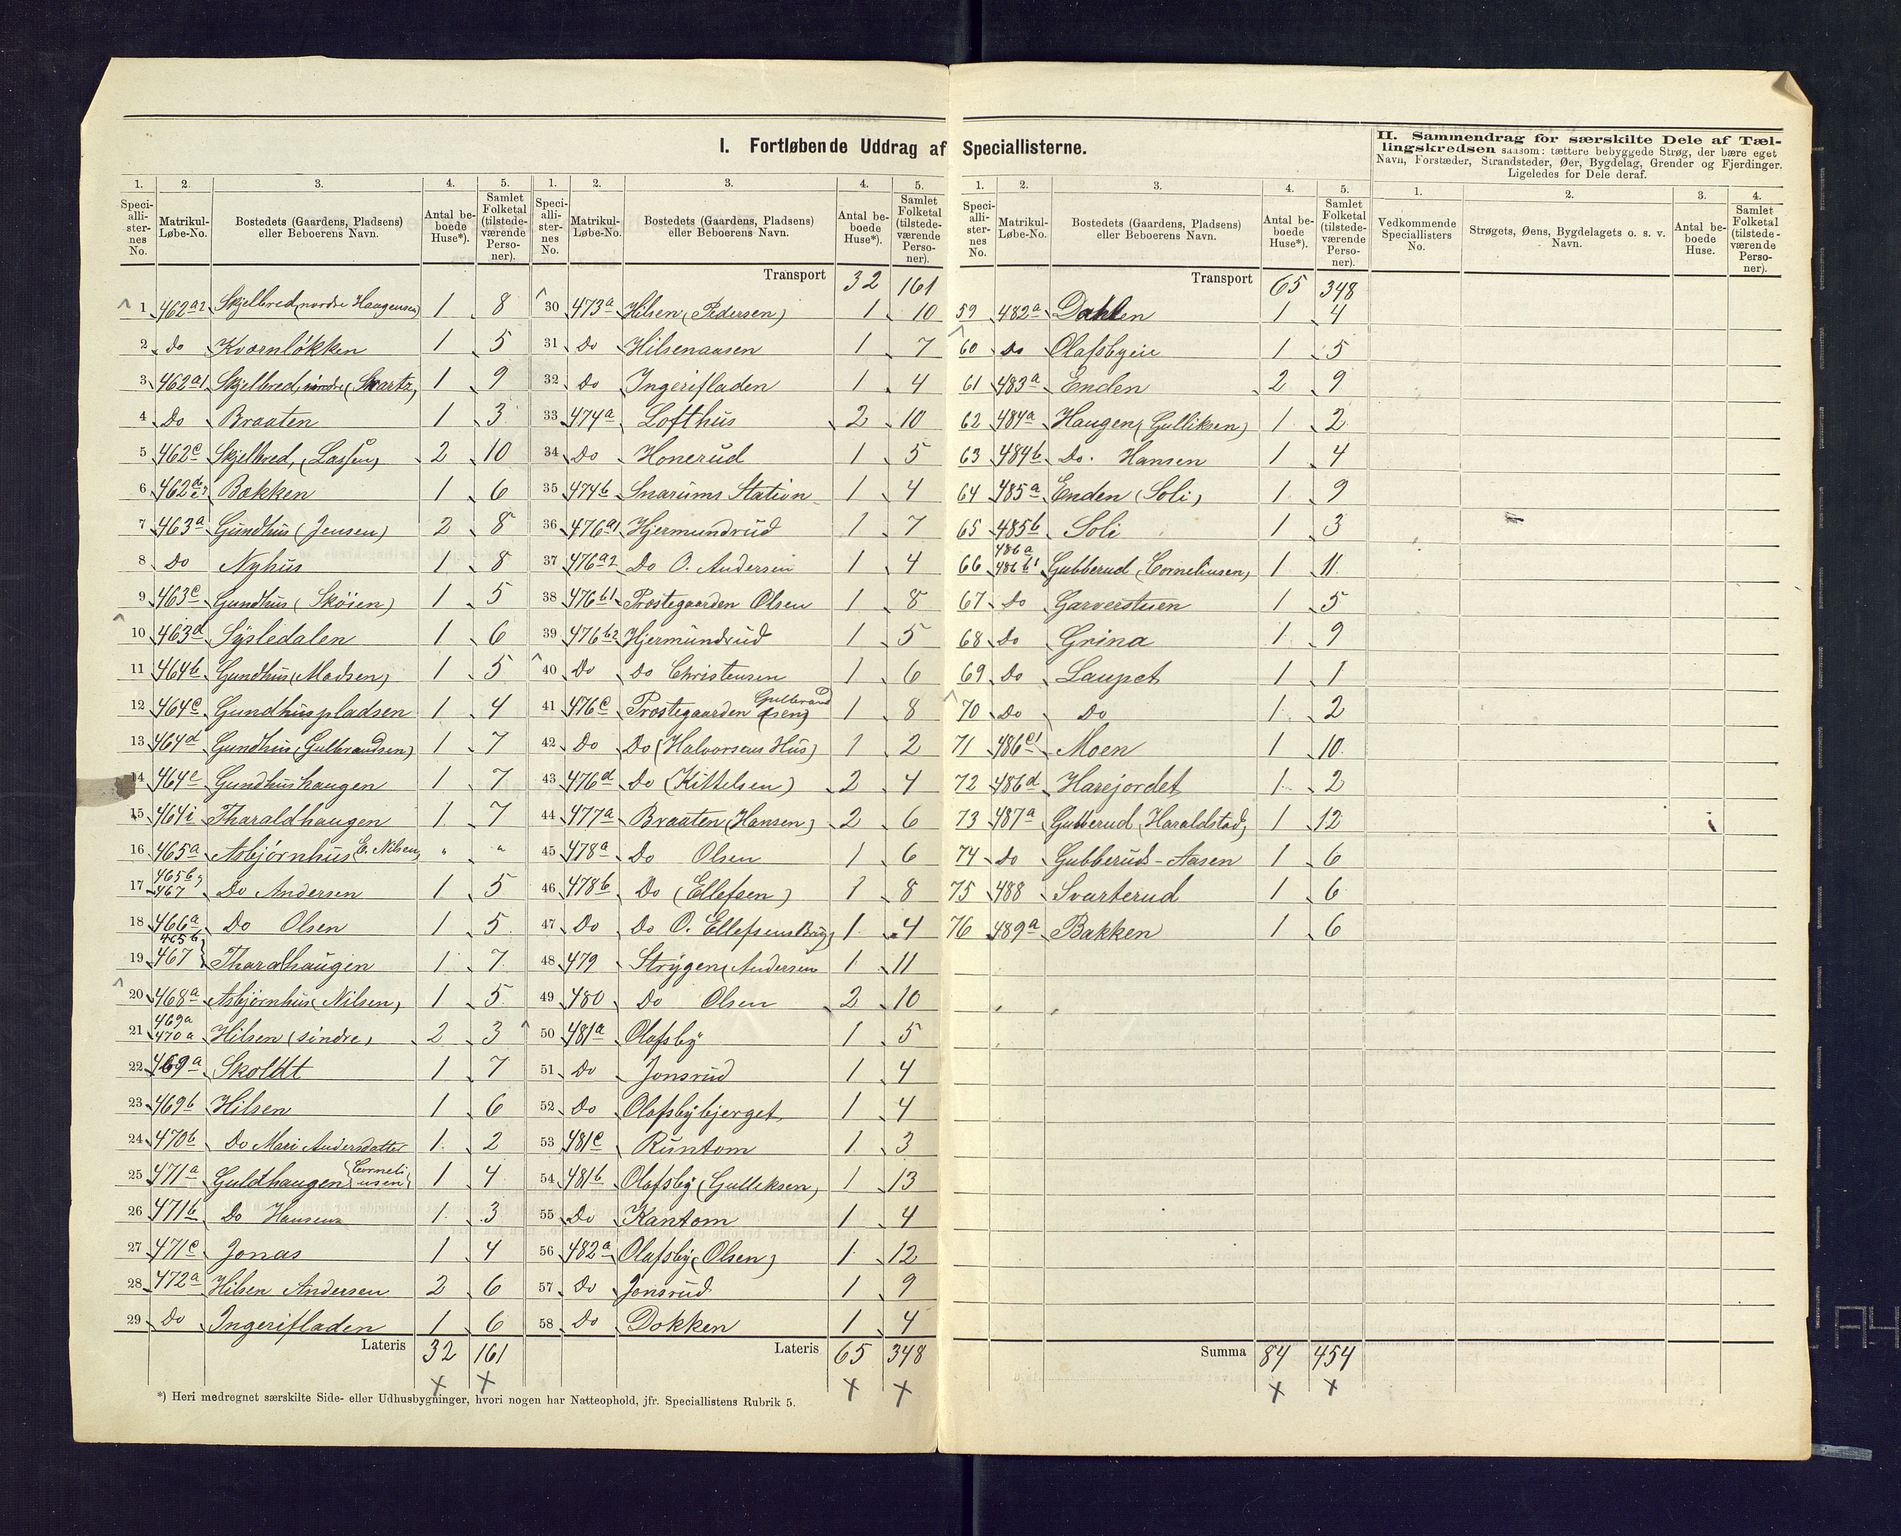 I. Fortløbende Uddrag af Speciallisterne.
II. Sammendrag for særskilte Dele af Tæl-
lingskredsen saasom: tættere bebyggede Strøg, der bære eget
Navn, Forstæder, Strandsteder, Øer, Bygdelag, Grender og Fjerdinger.
Ligeledes for Dele deraf.
1. 2. 3. 4. 5.
Speciallisternes No. Matrikul-Løbe-No. Bostedets (Gaardens, Pladsens) eller Beboerens Navn. Antal beboede Huse*). Samlet Folketal (tilstedeværende Personer).
1 462a2 Skjelbred, nordre Haugensen 1 8
2 Do Kvørnløkken 1 5
3 462a1 Skjelbred, nordre (Svartz) 1 9
4 Do Braaten 1 3
5 462c Skjelbred, (Lassen) 2 10
6 462d Bakken 1 6
7 463a Gundhus (Jensen) 2 8
8 Do Nyhus 1 8
9 463c Gundhus (Skøien) 1 5
10 463d Sysledalen 1 6
11 464b Gundhus (Madsen) 1 5
12 464c Gundhuspladsen 1 4
13 464d Gundhus (Gulbrandsen) 1 7
14 464e Gundhushaugen 1 7
15 464i Tharaldhaugen 1 7
16 465a Asbjørnhus E. Nilsen " "
17 465b, 467 Do Andersen 1 5
18 466a Do Olsen 1 5
19 465b 467 Tharaldhaugen 1 7
20 468a Asbjørnhus (Nilsen) 1 5
21 469a 470a Hilsen (søndre) 2 3
22 469a Skoldt 1 7
23 469b Hilsen 1 6
24 470b Do Mari Andersdatter 1 2
25 471a Guldhaugen (Corneliusen) 1 4
26 471b Do Hansen 1 3
27 471c Jonas 1 4
28 472a Hilsen Andersen 2 6
29 Do Ingerifladen 1 6
Lateris 32 161
1. 2. 3. 4. 5.
Speciallisternes No. Matrikul-Løbe-No. Bostedets (Gaardens, Pladsens) eller Beboerens Navn. Antal beboede Huse*). Samlet Folketal (tilstedeværende Personer).
Transport 32 161
30 473a Hilsen (Pedersen) 1 10
31 Do Hilsenaasen 1 7
32 Do Ingerifladen 1 4
33 474a Lofthus 2 10
34 Do Honerud 1 5
35 474b Snarums Station 1 4
36 476a1 Hjermundrud 1 7
37 476a2 Do O. Andersen 1 4
38 476b1 Prostegaarden Olsen 1 8
39 476b2 Hjermundrud 1 5
40 Do Do Christensen 1 6
41 476c Prostegaarden Gulbrandsen) 1 8
42 Do Do (Halvorsens Hus) 1 2
43 476d Do (Kittelsen) 2 4
44 477a Braaten (Hansen) 2 6
45 478a Do Olsen 1 6
46 478b Do (Ellefsen) 1 8
47 Do Do O. Ellefsens 1 4
48 479 Strygen (Andersen 1 11
49 480 Do Olsen 2 10
50 481a Olafsby 1 5
51 Do Jonsrud 1 4
52 Do Olafsbybjerget 1 4
53 481c Runtom 1 3
54 481b Olafsby (Gulleksen) 1 13
55 Do Kantom 1 4
56 482a Olafsby (Olsen) 1 12
57 Do Jonsrud 1 9
58 Do Dokken 1 4
Lateris 65 348
*) Heri medregnet særskilte Side- eller Udhusbygninger, hvori nogen har Natteophold, jfr. Speciallistens Rubrik 5.
1. 2. 3. 4. 5.
Speciallisternes No. Matrikul-Løbe-No. Bostedets (Gaardens, Pladsens) eller Beboerens Navn. Antal beboede Huse*). Samlet Folketal (tilstedeværende Personer).
Transport 65 348
59 482a Dahlen 1 4
60 Do Olafsbyeie 1 5
61 483a Enden 2 9
62 484a Haugen (Gulliksen) 1 2
63 484b Do. Hansen 1 4
64 485a Enden (Soli) 1 9
65 485b Soli 1 3
66 486a 486b1 Gubberud (Corneliusen) 1 11
67 Do Garverstuen 1 5
68 Do Grina 1 9
69 Do Laupet 1 1
70 Do Do 1 2
71 486c1 Moen 1 10
72 486d Harejordet 1 2
73 487a Gubberud (Haraldstad) 1 12
74 Do Gubberuds-Aasen 1 6
75 488 Svarterud 1 6
76 489a Bakken 1 6
Summa 84 454
1. 2. 3. 4.
Vedkommende Speciallisters No. Strøgets, Øens, Bygdelagets o. s. v. Navn. Antal beboede Huse. Samlet Folketal (tilstedeværende Personer).